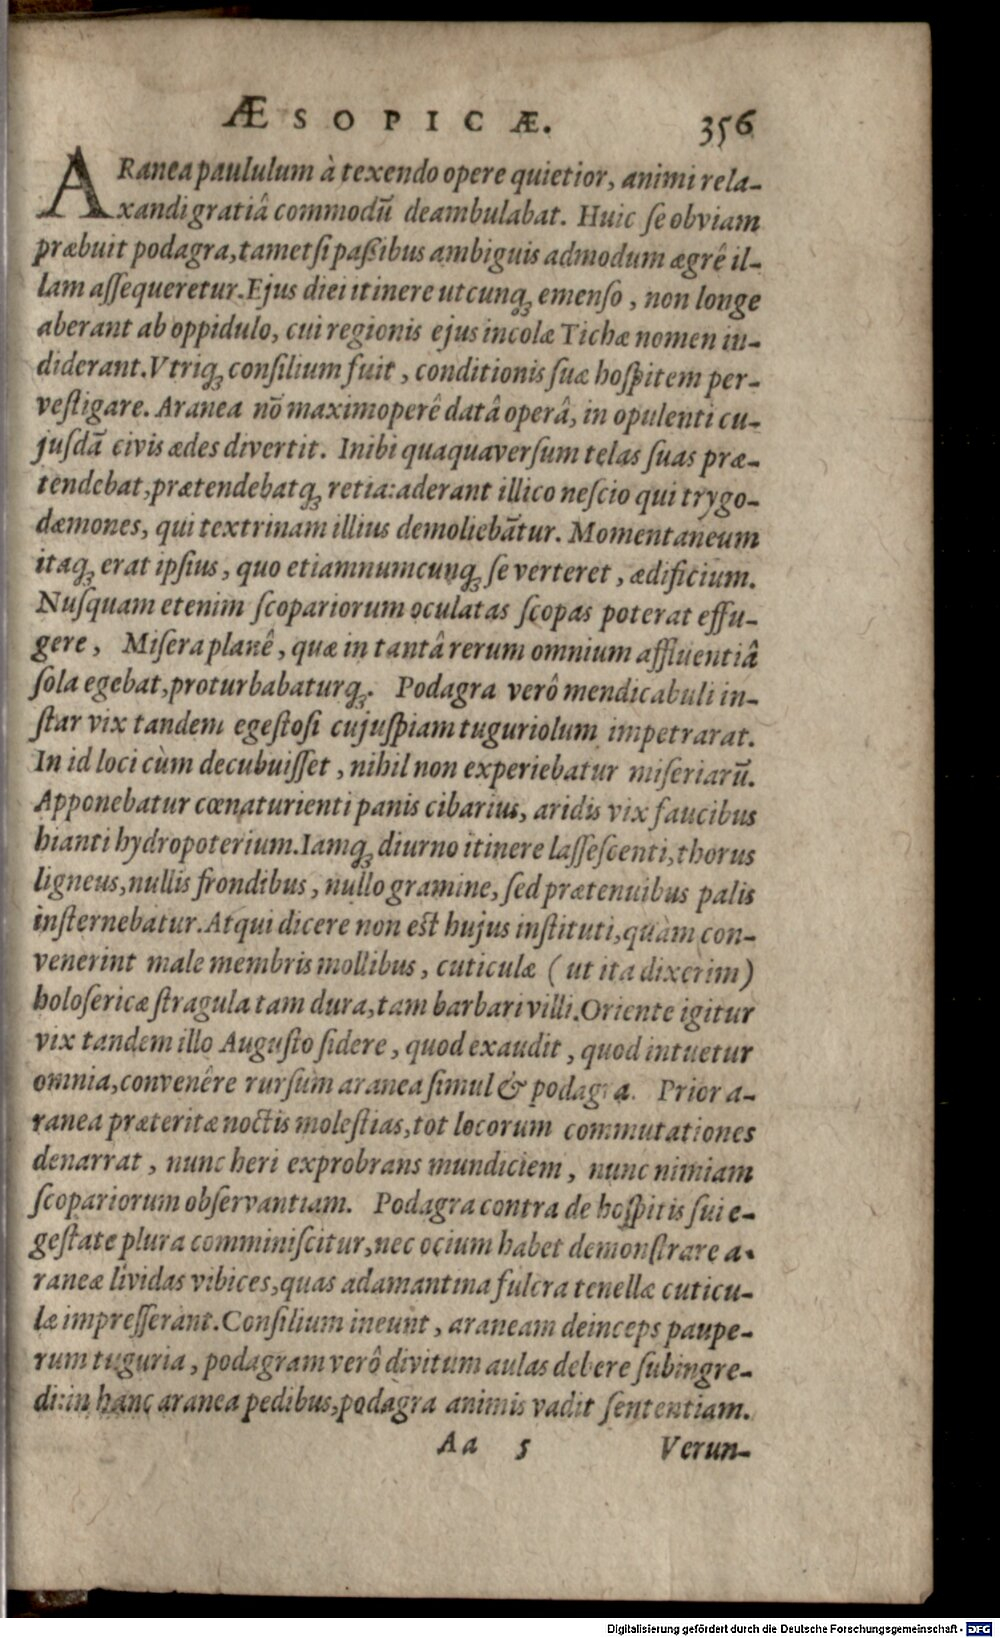 ÆSOPICÆ. 356
ARanea paululum à texendo opere quietior, animi rela-
xandi gratiâ commodũ deambulabat. Huic ſe obviam
præbuit podagra, tametſi paßibus ambiguis admodum ægrê il-
lam aſſequeretur. Ejus diei itinere utcunq; emenſo, non longe
aberant ab oppidulo, cui regionis ejus incolæ Tichæ nomen in-
diderant. Vtriq; conſilium fuit, conditionis ſuæ hoſpitem per-
veſtigare. Aranea nõ maximoperê datâ operâ, in opulenti cu-
juſdã civis ædes divertit. Inibi quaquaverſum telas ſuas præ-
tendebat, prætendebatq; retia: aderant illico neſcio qui trygo-
dæmones, qui textrinam illius demoliebãtur. Momentaneum
itaq; erat ipſius, quo etiamnumcunq; ſe verteret, ædificium.
Nuſquam etenim ſcopariorum oculatas ſcopas poterat effu-
gere, Miſera planê, quæ in tantâ rerum omnium affluentiâ
ſola egebat, proturbabaturq;. Podagra verô mendicabuli in-
ſtar vix tandem egeſtoſi cujuſpiam tuguriolum impetrarat.
In id loci cùm decubuiſſet, nihil non experiebatur miſeriarũ.
Apponebatur cœnaturienti panis cibarius, aridis vix faucibus
hianti hydropoterium. Iamq; diurno itinere laſſeſcenti, thorus
ligneus, nullis frondibus, nullo gramine, ſed prætenuibus palis
inſternebatur. Atqui dicere non eſt hujus inſtituti, quàm con-
venerint male membris mollibus, cuticulæ (ut ita dixerim)
holoſericæ ſtragula tam dura, tam barbari villi. Oriente igitur
vix tandem illo Auguſto ſidere, quod exaudit, quod intuetur
omnia, convenêre rurſum aranea ſimul & podagra. Prior a-
ranea præteritæ noctis moleſtias, tot locorum commutationes
denarrat, nunc heri exprobrans mundiciem, nunc nimiam
ſcopariorum obſervantiam. Podagra contra de hoſpitis ſui e-
geſtate plura comminiſcitur, nec ocium habet demonſtrare a-
raneæ lividas vibices, quas adamantina fulcra tenellæ cuticu-
læ impreſſerant. Conſilium ineunt, araneam deinceps paupe-
rum tuguria, podagram verô divitum aulas debere ſubingre-
di: in hanc aranea pedibus, podagra animis vadit ſententiam.
Aa 5 Verun-
Digitalisierung gefördert durch die Deutsche Forschungsgemeinschaft - DFG